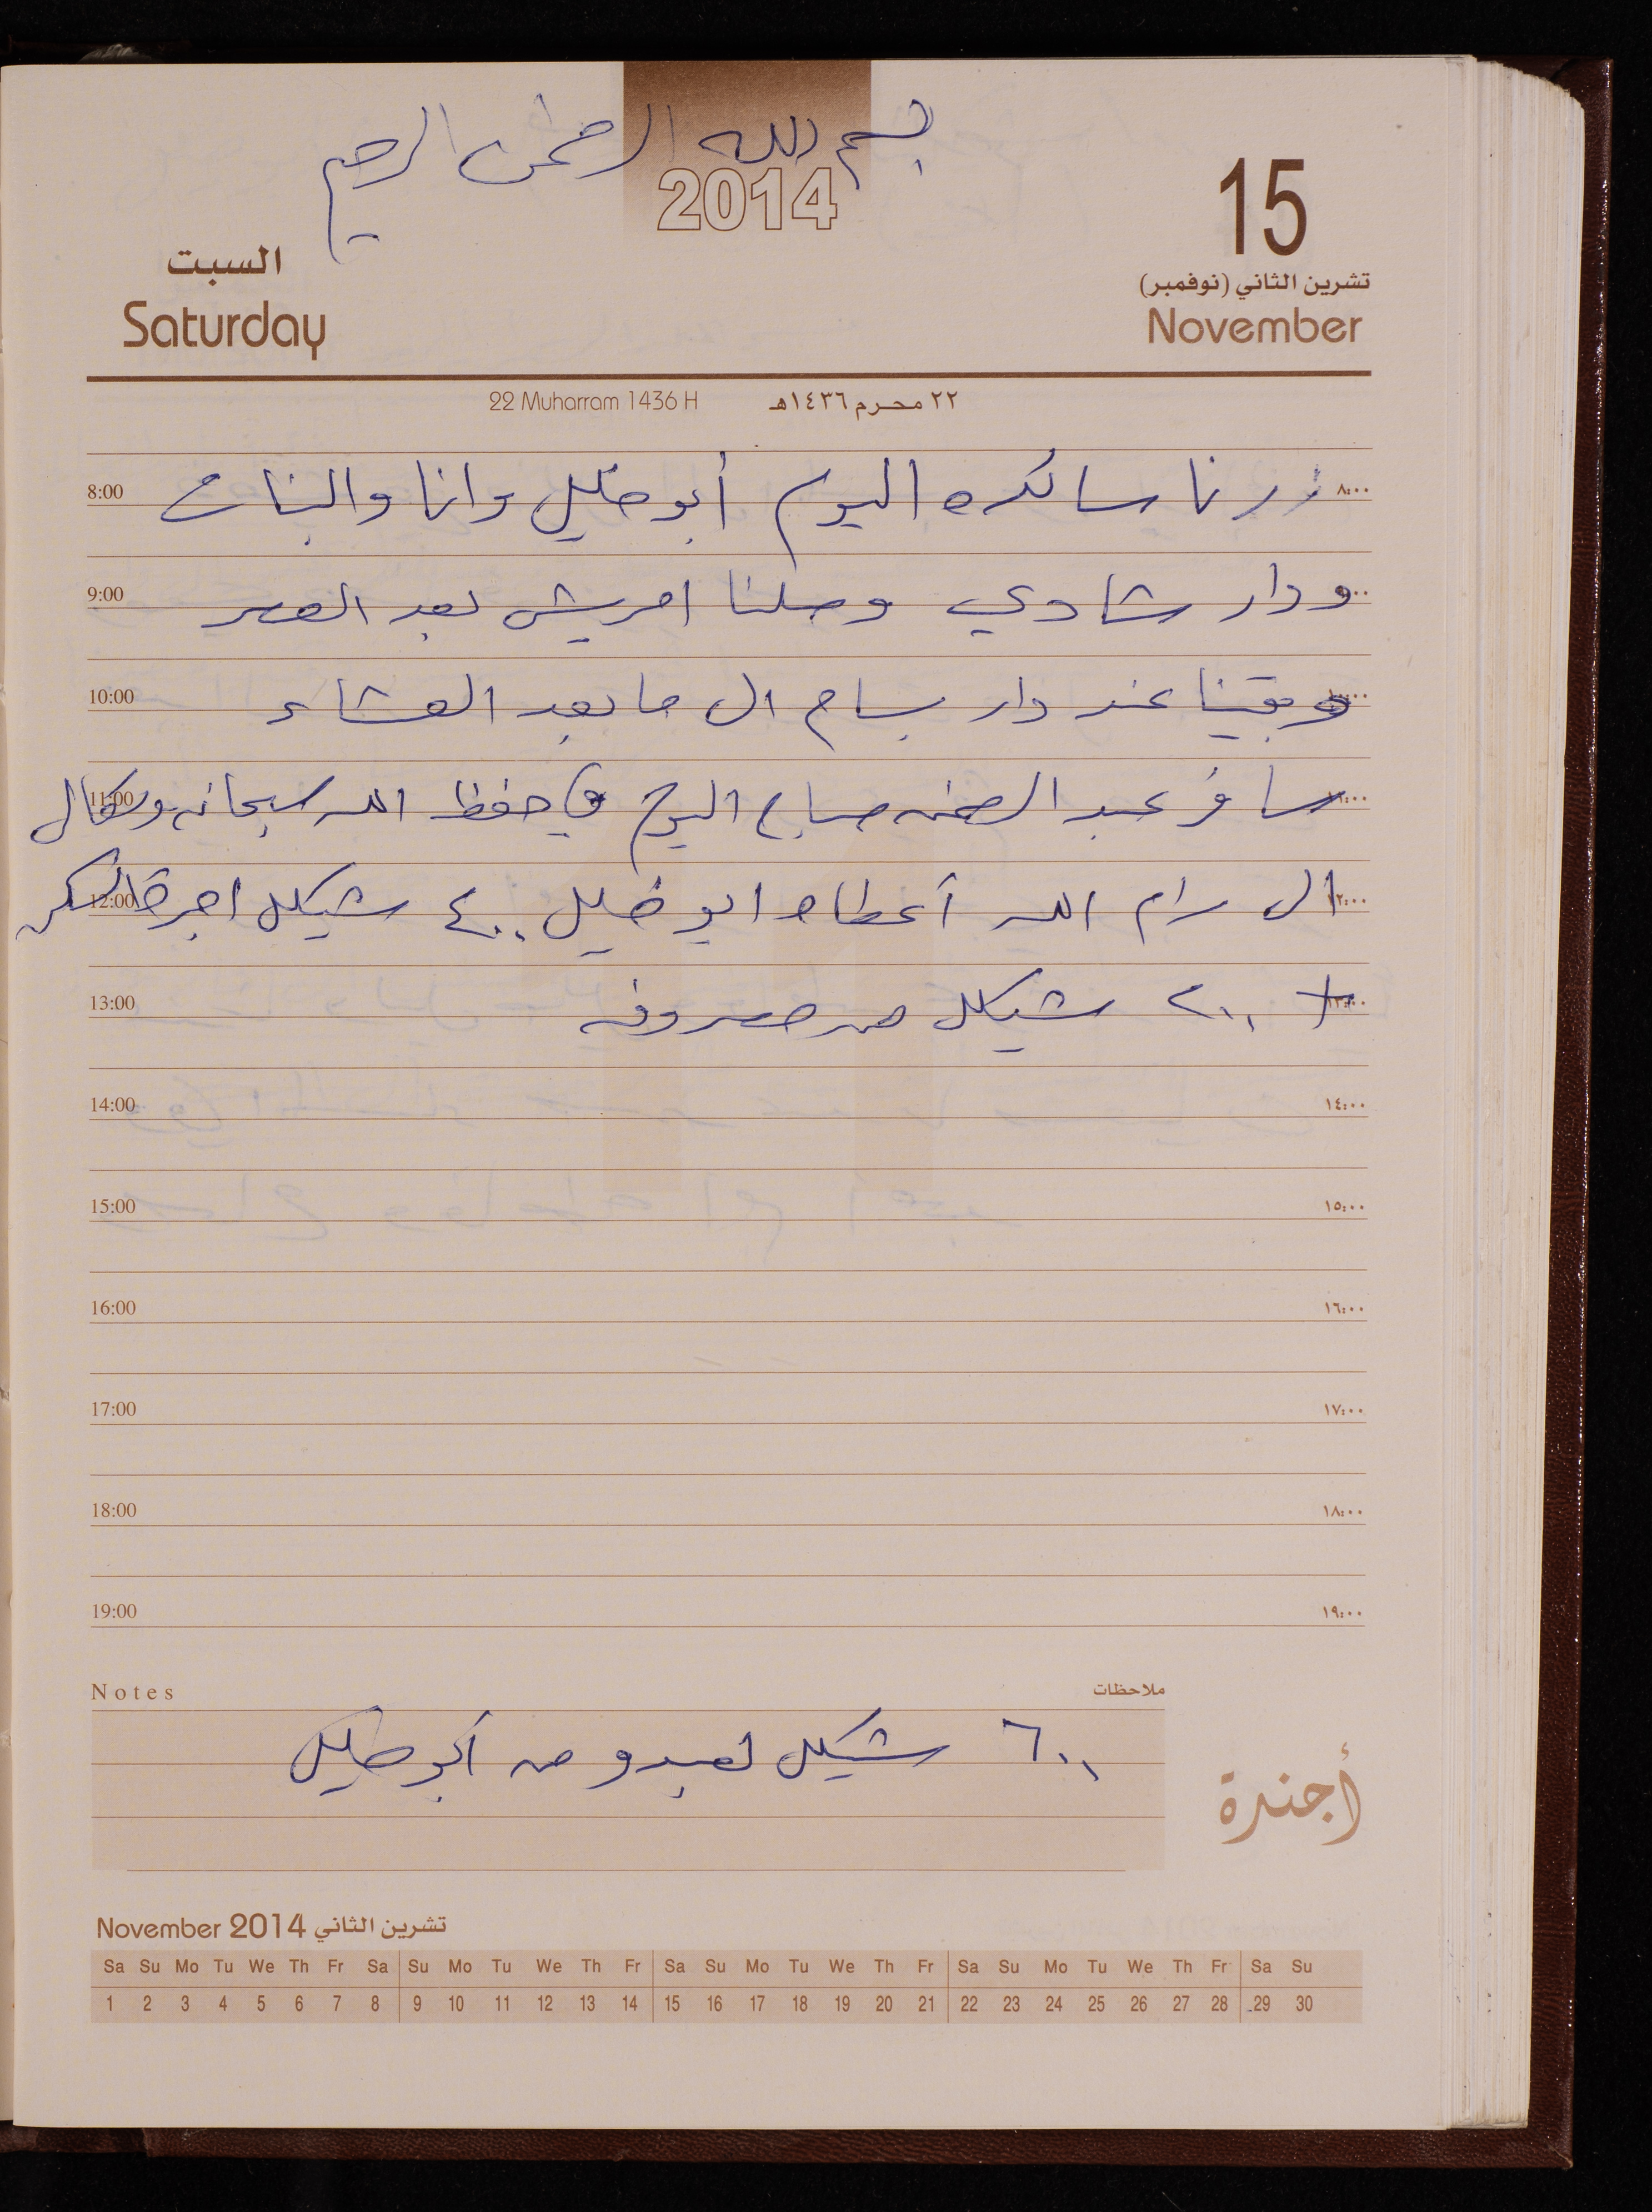 بسم الله الرحمن الرحيم
2014
15
تشرين الثاني (نوفمبر)
November
السبت
Saturday
22 Muharram 1436 H ٢٢ محرم ١٤٣٦هـ
8:00 زرنا سائده اليوم أبو خليل وانا والبنات ٨:٠٠
9:00 ودار شادي وصلنا امريش بعد العصر
10:00 وبقينا عند دار بسام الى ما بعد العشاء
11:00 سافر عبد الرحمن صباح اليوم في حفظ الله سبحانه وتعالى
12:00 الى رام الله أعطاه ابو خليل ٤٠٠ شيكل اجرة السكن ١٢:٠٠
13:00 + ٢٠٠ شيكل من مصروفه ١٣:٠٠
14:00 ١٤:٠٠
15:00 ١٥:٠٠
16:00 ١٦:٠٠
17:00 ١٧:٠٠
18:00 ١٨:٠٠
19:00 ١٩:٠٠
Notes ملاحظات
٦٠٠ شيكل لعبدو من أبو خليل
أجندة
November 2014 تشرين الثاني
Sa Su Mo Tu We Th Fr Sa Su Mo Tu We Th Fr Sa Su Mo Tu We Th Fr Sa Su Mo Tu We Th Fr Sa Su
1 2 3 4 5 6 7 8 9 10 11 12 13 14 15 16 17 18 19 20 21 22 23 24 25 26 27 28 29 30